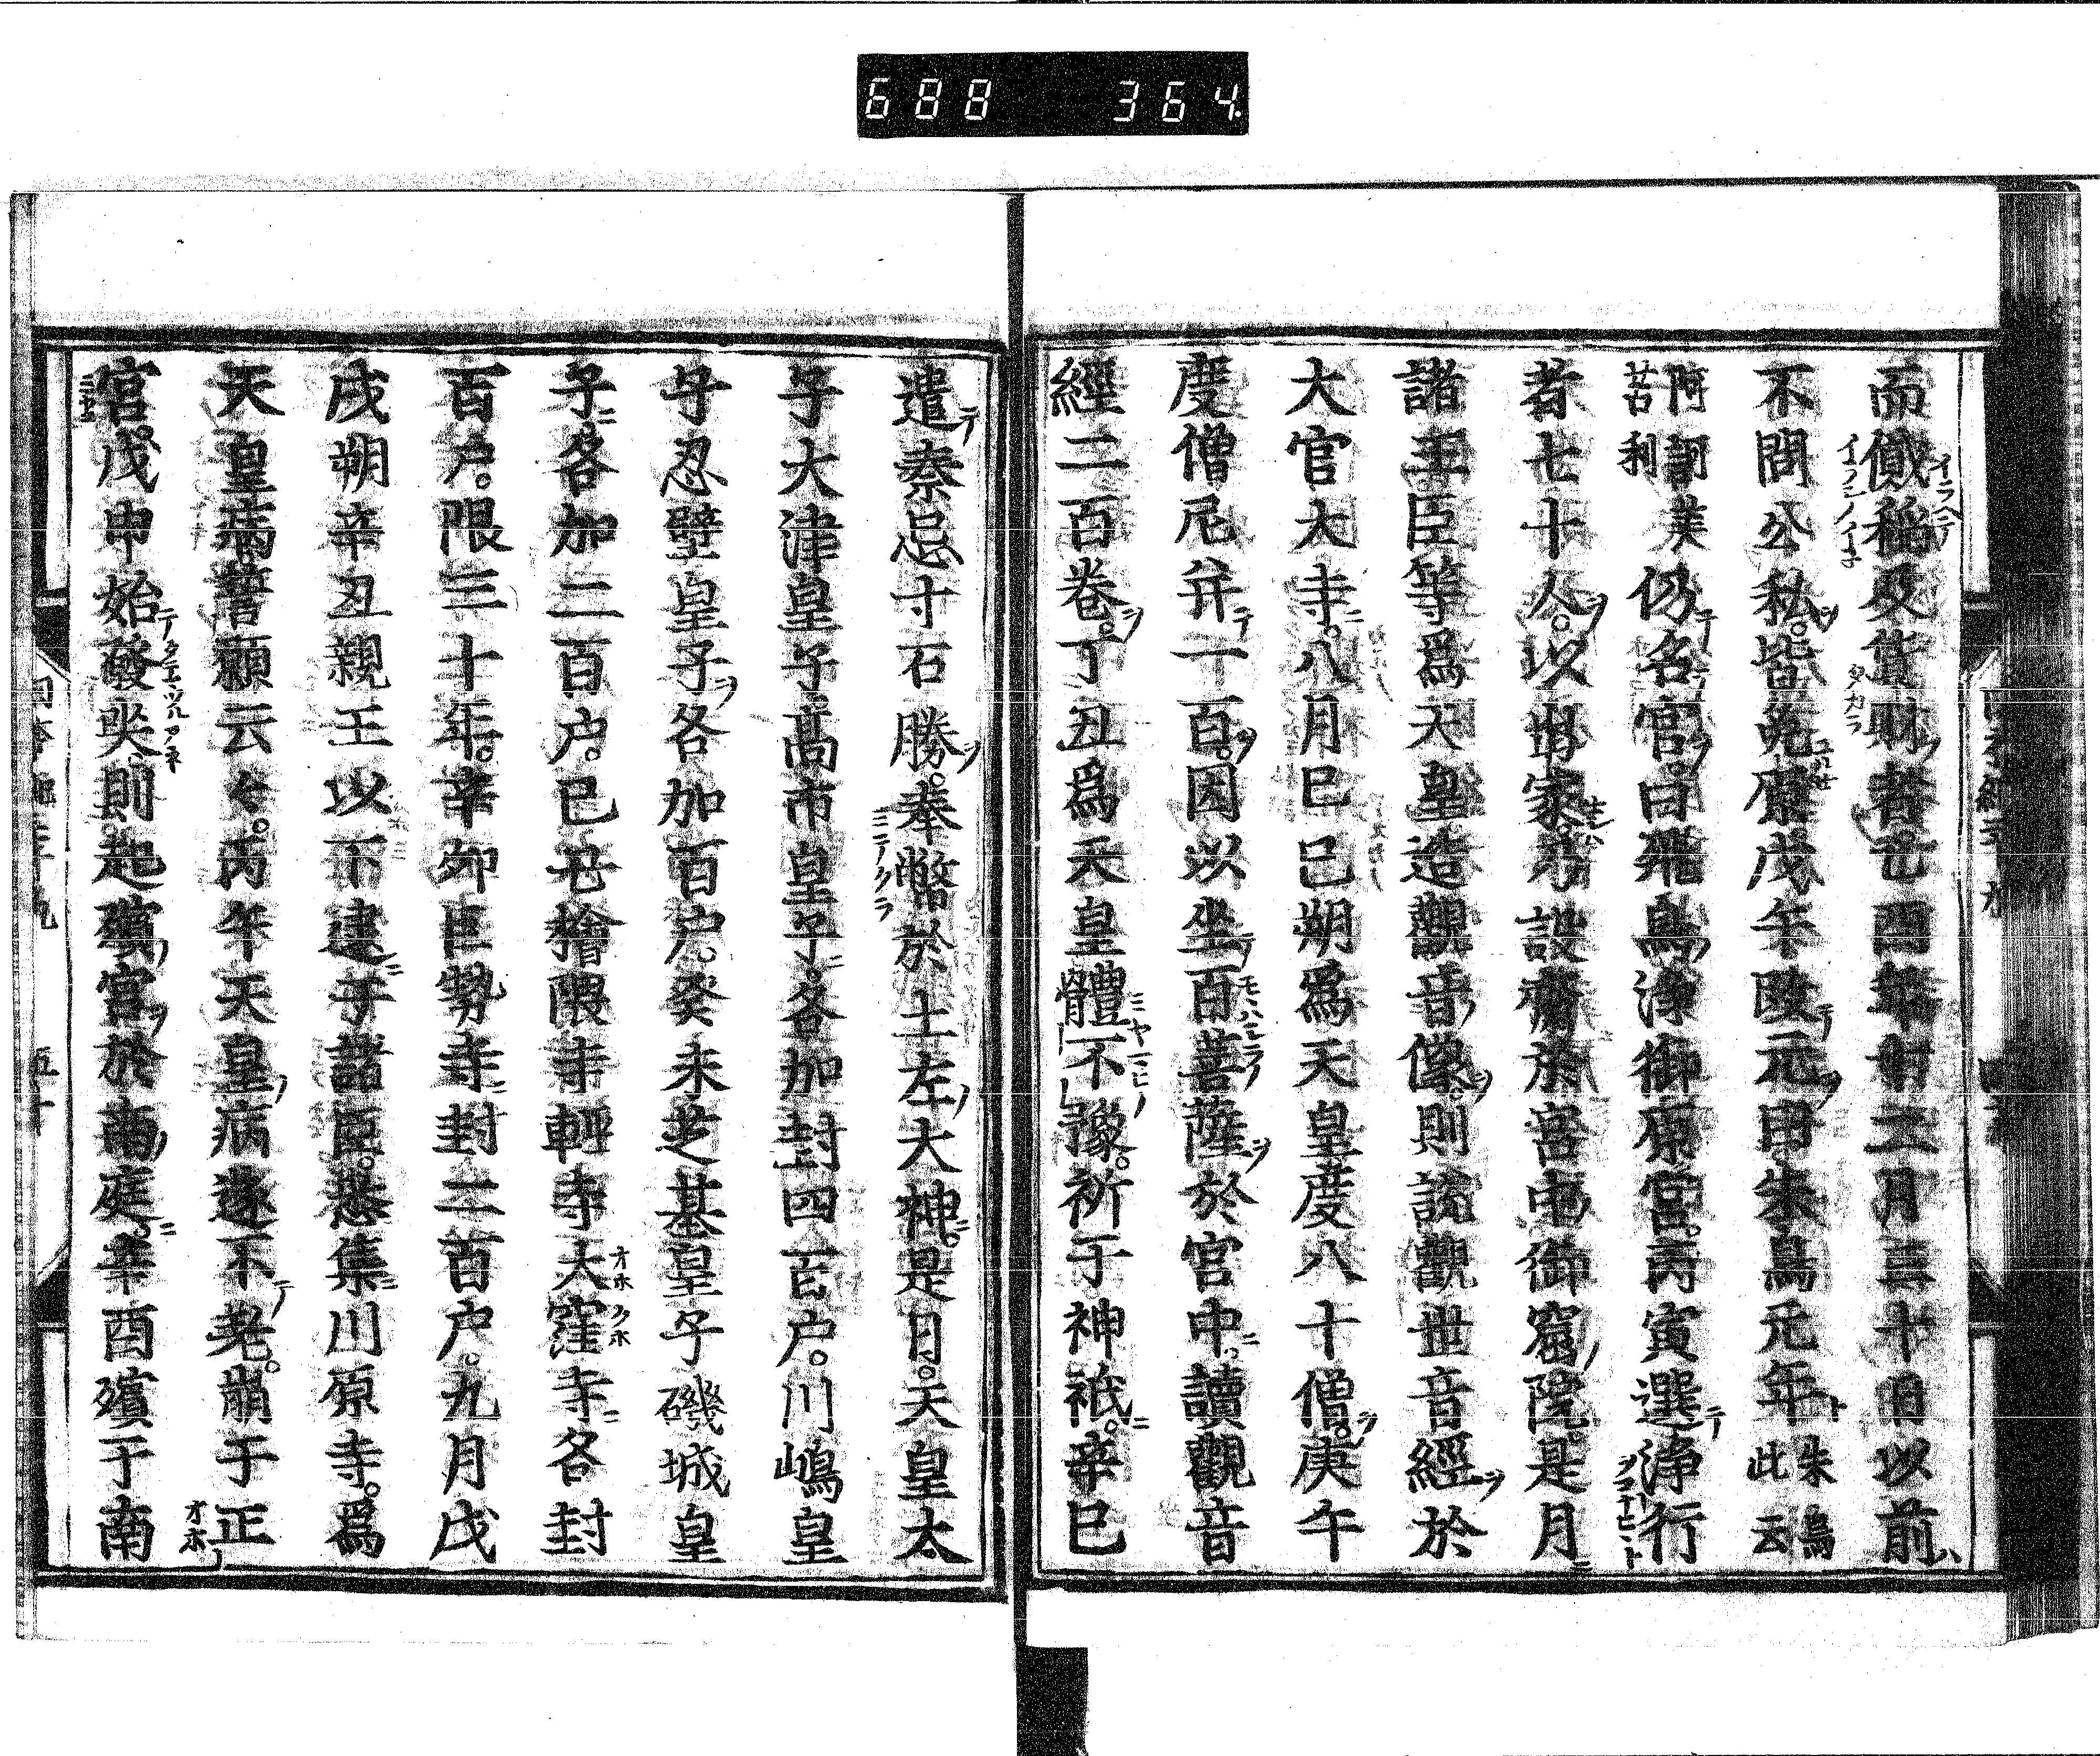 688 364
而貸稲及貨財者乙酉年十二月三十日以前
不問公私皆免原戊午改元曰朱鳥元年 朱鳥此云
阿訶美苔利 仍名宮曰飛鳥浄御原宮丙寅選浄行
者七十人以出家乃設齋於宮中御窟院是月
諸王臣等爲天皇造觀音像則説觀世音經於
大官大寺八月巳己朔爲天皇度八十僧庚午
度僧尼并一百因以坐百菩薩於宮中讀觀音
經二百巻丁丑爲天皇體不豫祈于神祇辛巳
遣秦忌寸石勝奉幣於土左大神是日天皇太
子大津皇子高市皇子各加封四百户川嶋皇
子忍壁皇子各加百户癸未芝基皇子磯城皇
子各加二百户己丑檜隈寺輕寺大窪寺各封
百户限三十年辛卯巨勢寺封二百户九月戊
戌朔辛丑親王以下逮于諸臣悉集川原寺爲
天皇病誓願云々丙午天皇病遂不差崩于正
宮戊申始發哭則起殯宮於南庭辛酉殯于南